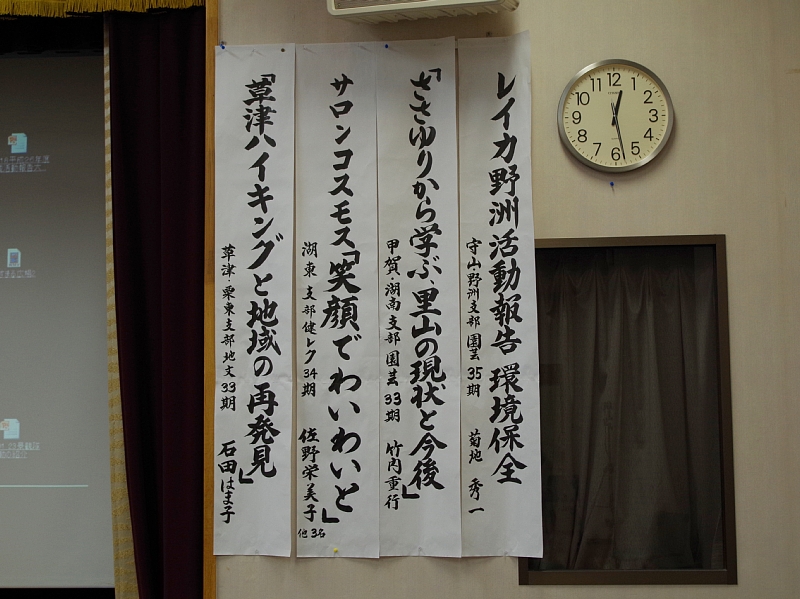 レイカ野洲活動報告 環境保全
守山・野洲支部 園芸 35期 菊地 秀一
「ささゆりから学ぶ、里山の現状と今後」
甲賀・湖南支部 園芸 33期 竹内重行
サロンコスモス「笑顔でわいわいと」
湖東支部健レク 34期 佐野栄美子 他3名
「草津ハイキングと地域の再発見」
草津・栗東支部地文33期 石田はま子
12
1
2
3
4
5
6
7
8
9
10
11